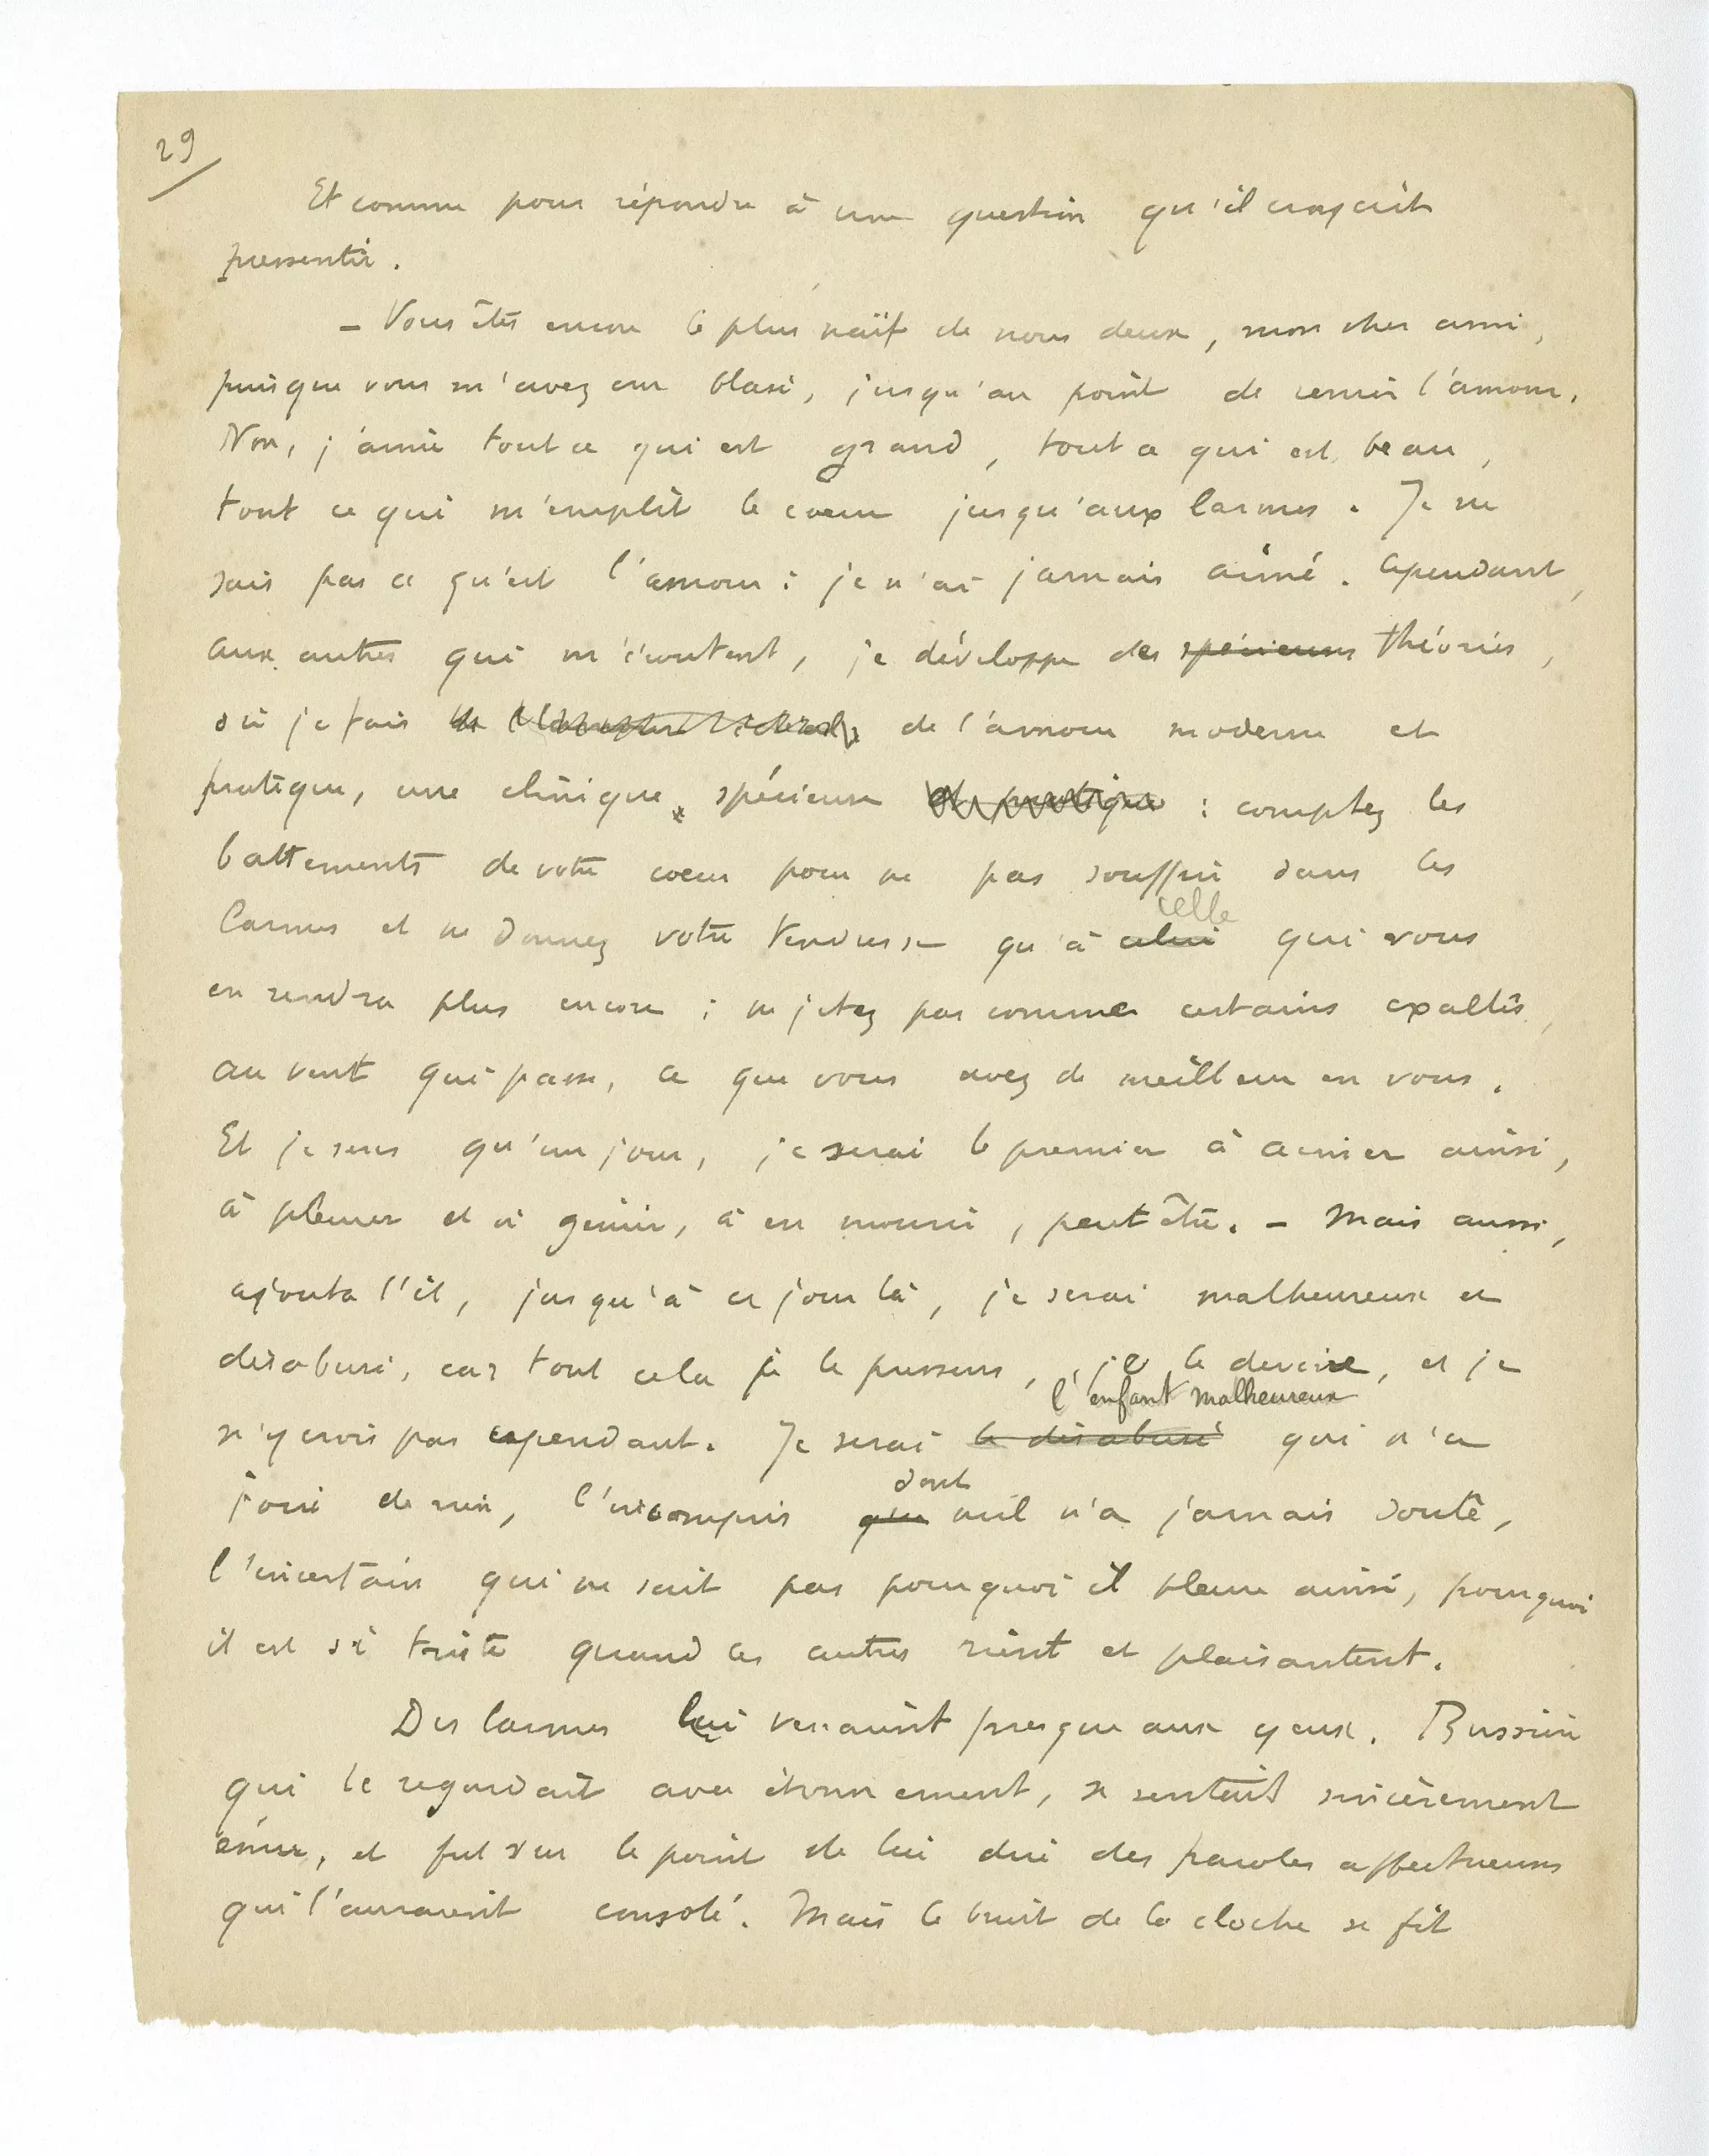 29
Et comme pour répondre à une question qu'il croyait
pressentir.
– Vous êtes encore le plus naïf de nous deux, mon cher ami,
puisque vous m'avez cru blasé, jusqu'au point de renier l'amour.
Non, j'aime tout ce qui est grand, tout ce qui est beau,
tout ce qui m'emplit le cœur jusqu'aux larmes. Je ne
sais pas ce qu'est l'amour : je n'ai jamais aimé. Cependant,
aux autres qui m'écoutent, je développe des spécieuses théories,
où je fais de l'amour moderne et
pratique, une clinique spécieuse et pratique : comptez les
battements de votre coeur pour ne pas souffrir dans les
celle
larmes et ne donnez votre tendresse qu'à celui qui vous
en rendra plus encore ; ne jetez pas comme certains exaltés,
au vent qui passe, ce que vous avez de meilleur en vous.
Et je sens qu'un jour, je serai le premier à aimer ainsi,
à pleurer et à gémir, à en mourir, peut être. – Mais aussi,
ajouta l'il, jusqu'à ce jour là, je serai malheureux et
désabusé, car tout cela je le pressens, je le devine, et je
l'enfant malheureux
n'y crois pas cependant. Je serai le désabusé qui n'a
dont
joui de rien, l'incompris qu'un nul n'a jamais douté,
l'incertain qui ne sait pas pourquoi il pleure ainsi, pourquoi
il est si triste quand les autres rient et plaisantent.
Des larmes lui venaient presque aux yeux. Bussière
qui le regardait avec étonnement, se sentait sincèrement
ému, et fut sur le point de lui dire des paroles affectueuses
qui l'auraient consolé. Mais le bruit de la cloche se fit